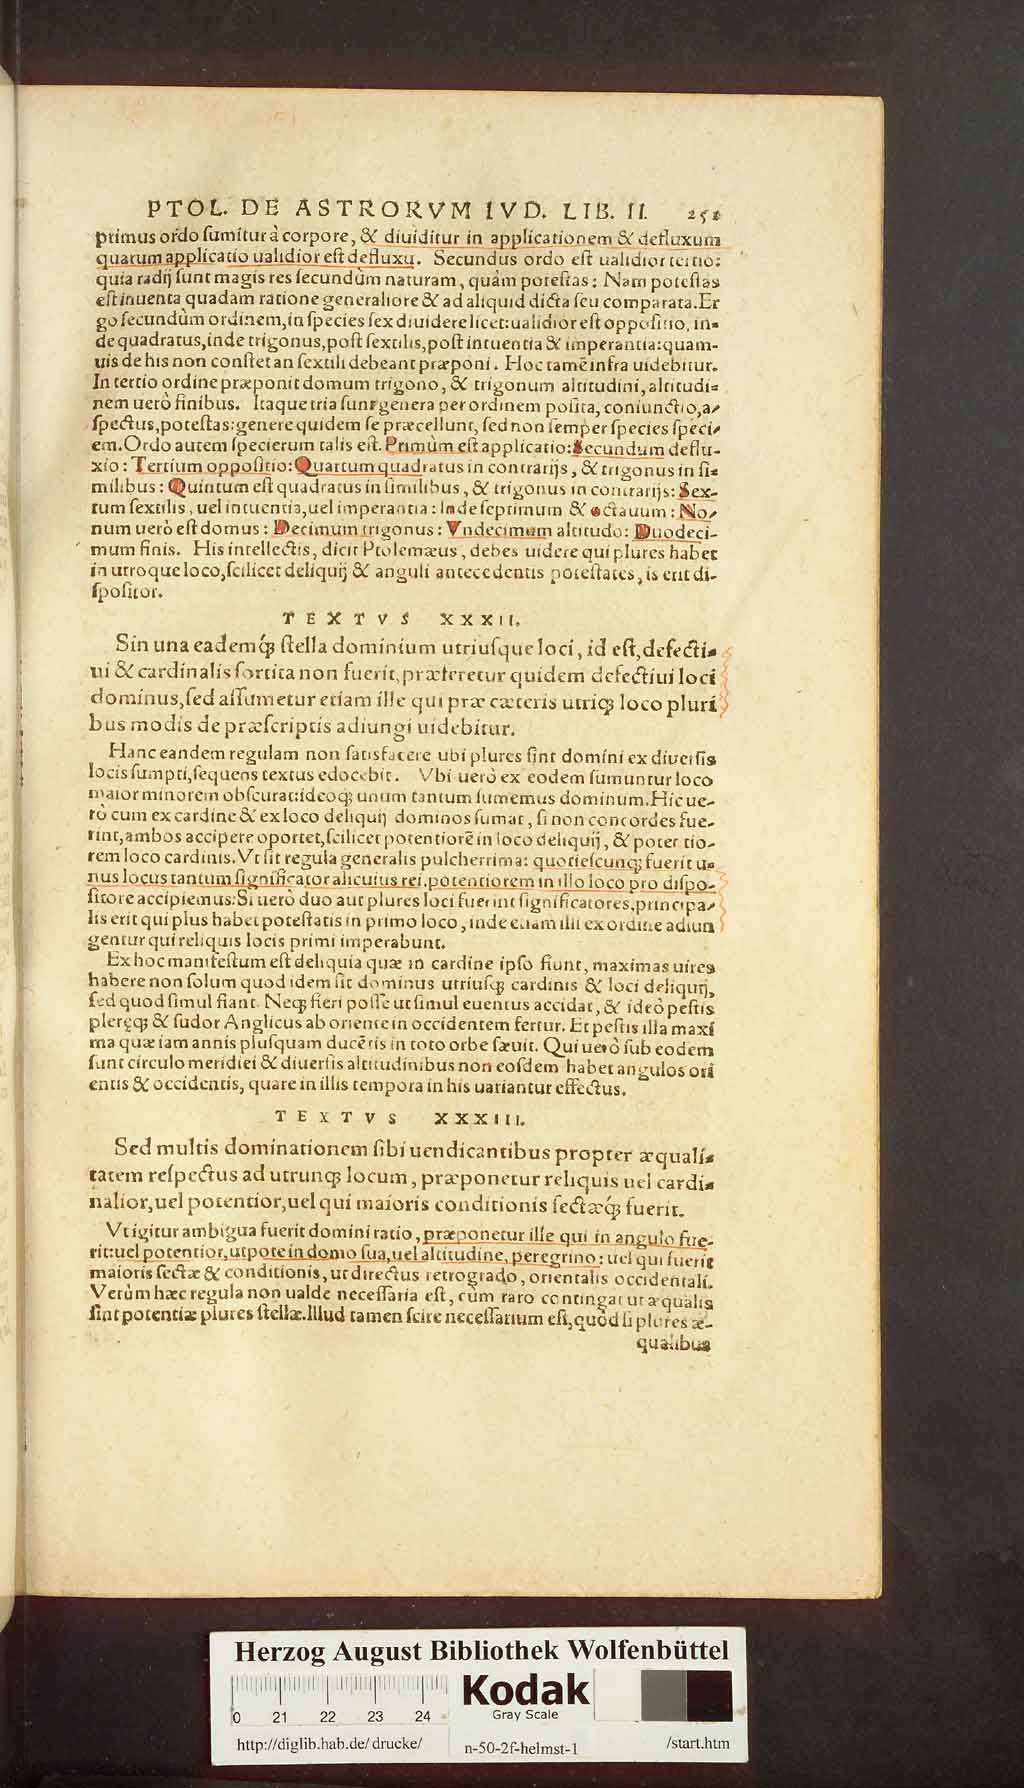 PTOL. DE ASTRORVM IVD. LIB. II. 251
primus ordo ſumitur à corpore, & diuiditur in applicationem & defluxum
quarum applicatio ualidior eſt defluxu. Secundus ordo eſt ualidior tertio:
quia radij ſunt magis res ſecundùm naturam, quàm poteſtas: Nam poteſtas
eſt inuenta quadam ratione generaliore & ad aliquid dicta ſeu comparata. Er
go ſecundùm ordinem, in ſpecies ſex diuidere licet: ualidior eſt oppoſitio, in-
de quadratus, inde trigonus, poſt ſextilis, poſt intuentia & imperantia: quam-
uis de his non conſtet an ſextili debeant præponi. Hoc tamē infra uidebitur.
In tertio ordine præponit domum trigono, & trigonum altitudini, altitudi-
nem uerò finibus. Itaque tria ſunt genera per ordinem poſita, coniunctio, a-
ſpectus, poteſtas: genere quidem ſe præcellunt, ſed non ſemper ſpecies ſpeci-
em. Ordo autem ſpecierum talis eſt. Primùm eſt applicatio: Secundum deflu-
xio: Tertium oppoſitio: Quartum quadratus in contrarijs, & trigonus in ſi-
milibus: Quintum eſt quadratus in ſimilibus, & trigonus in contrarijs: Sex-
tum ſextilis, uel intuentia, uel imperantia: Inde ſeptimum & octauum: No-
num uerò eſt domus: Decimum trigonus: Vndecimum altitudo: Duodeci-
mum finis. His intellectis, dicit Ptolemæus, debes uidere qui plures habet
in utroque loco, ſcilicet deliquij & anguli antecedentis poteſtates, is erit di-
ſpoſitor.
TEXTVS XXXII.
Sin una eademq́; ſtella dominium utriuſque loci, id eſt, defecti-
ui & cardinalis ſortita non fuerit, præferetur quidem defectiui loci
dominus, ſed aſſumetur etiam ille qui præ cæteris utriq; loco pluri
bus modis de præſcriptis adiungi uidebitur.
Hanc eandem regulam non ſatisfacere ubi plures ſint domini ex diuerſis
locis ſumpti, ſequens textus edocebit. Vbi uerò ex eodem ſumuntur loco
maior minorem obſcurat: ideoq; unum tantum ſumemus dominum. Hic ue-
rò cum ex cardine & ex loco deliquij dominos ſumat, ſi non concordes fue-
rint, ambos accipere oportet, ſcilicet potentiorē in loco deliquij, & potentio-
rem loco cardinis. Vt ſit regula generalis pulcherrima: quotieſcunq; fuerit u-
nus locus tantum ſignificator alicuius rei, potentiorem in illo loco pro diſpo-
ſitore accipiemus: Si uerò duo aut plures loci fuerint ſignificatores, principa-
lis erit qui plus habet poteſtatis in primo loco, inde etiam illi ex ordine adiun
gentur qui reliquis locis primi imperabunt.
Ex hoc manifeſtum eſt deliquia quæ in cardine ipſo fiunt, maximas uires
habere non ſolum quod idem ſit dominus utriuſq; cardinis & loci deliquij,
ſed quod ſimul fiant. Neq; fieri poſſe ut ſimul euentus accidat, & ideò peſtis
pleręq; & ſudor Anglicus ab oriente in occidentem fertur. Et peſtis illa maxi
ma quæ iam annis pluſquam ducētis in toto orbe ſæuit. Qui uerò ſub eodem
ſunt circulo meridiei & diuerſis altitudinibus non eoſdem habet angulos ori
entis & occidentis, quare in illis tempora in his uariantur effectus.
TEXTVS XXXIII.
Sed multis dominationem ſibi uendicantibus propter æquali-
tatem reſpectus ad utrunq; locum, præponetur reliquis uel cardi-
nalior, uel potentior, uel qui maioris conditionis ſectæq́; fuerit.
Vt igitur ambigua fuerit domini ratio, præponetur ille qui in angulo fue-
rit: uel potentior, utpote in domo ſua, uel altitudine, peregrino: uel qui fuerit
maioris ſectæ & conditionis, ut directus retrogrado, orientalis occidentali.
Verùm hæc regula non ualde neceſſaria eſt, cùm raro contingat ut æqualis
ſint potentiæ plures ſtellæ. Illud tamen ſcire neceſſarium eſt, quòd ſi plures æ-
qualibus
Herzog August Bibliothek Wolfenbüttel
0 21 22 23 24
Kodak
Gray Scale
http://diglib.hab.de/drucke/ n-50-2f-helmst-1 /start.htm